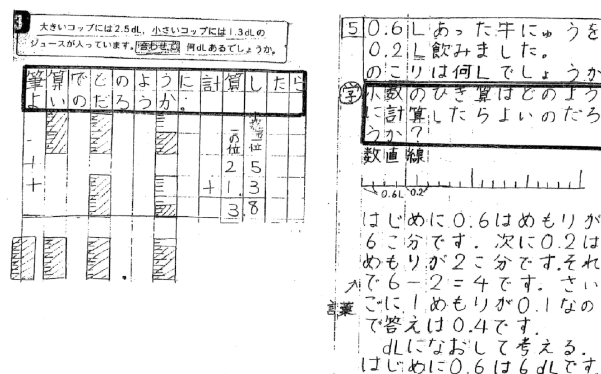 3
大きいコップには2.5dL、小さいコップには1.3dLの
ジュースが入っています。合わせて何dLあるでしょうか。
筆算でどのように計算したら
よいのだろうか。
一の位
2 5
+ 1.3
3.8
5 0.6Lあった牛にゅうを
0.2L飲みました。
のこりは何Lでしょうか
学 小数のひき算はどのよう
に計算したらよいのだろ
うか?
数直線
0.6L 0.2
はじめに0.6はめもりが
6こ分です。次に0.2は
めもりが2こ分です。それ
で6-2=4です。さい
ごに1めもりが0.1なの
で答えは0.4です。
言葉
dLになおして考える。
はじめに0.6は6dLです